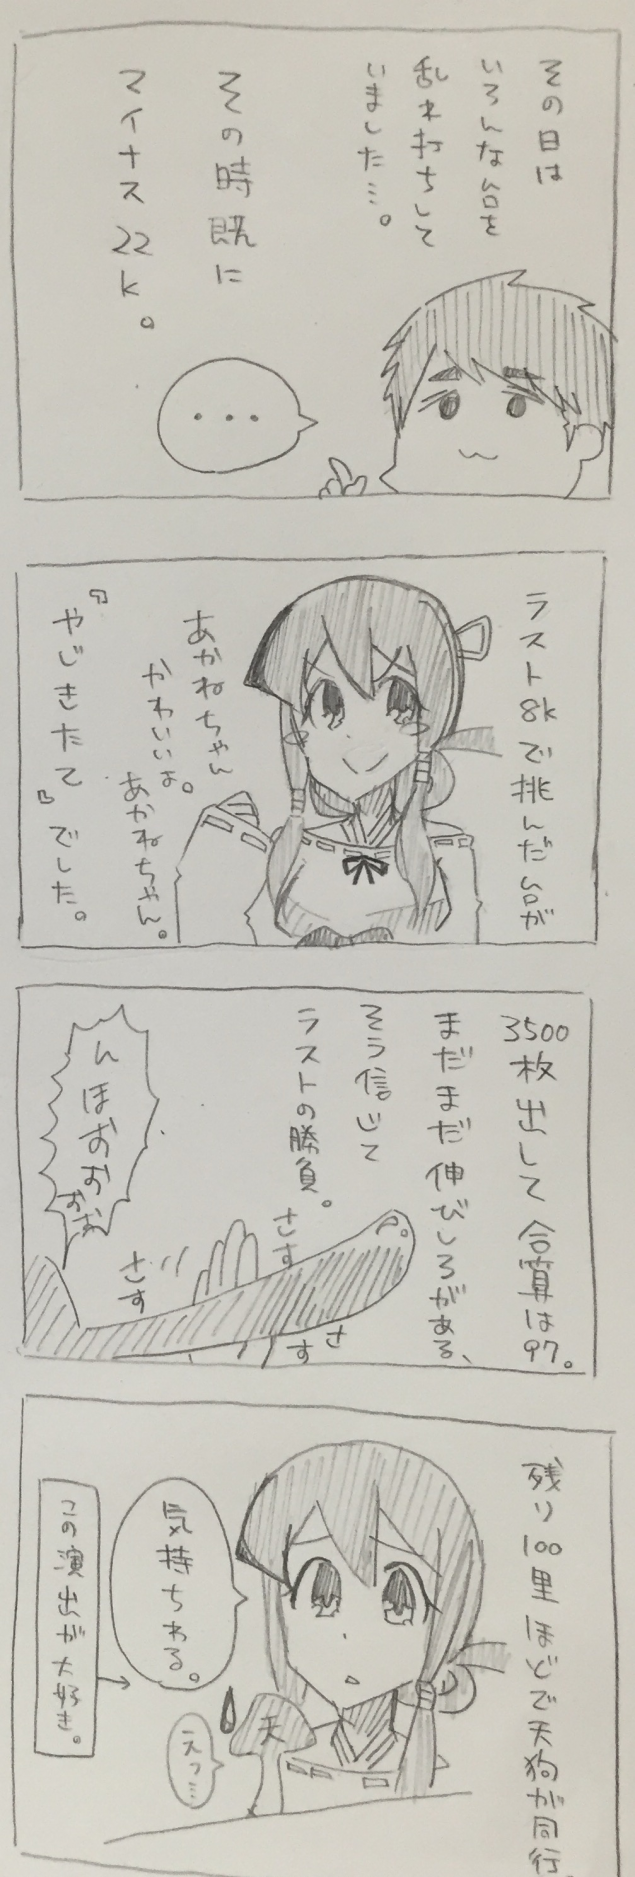 その日は
いろんな台を
乱れ打ちして
いました…。
その時既に
マイナス22k。
・・・
ラスト8kで挑んだ台が
あかねちゃん
かわいいよ。
あかねちゃん。
『やじきたて』でした。
3500枚出して合算は97。
まだまだ伸びしろがある、
そう信じて
ラストの勝負。
さす
さす
さす
んほおおおお
残り100里ほどで天狗が同行。
気持ちわる。
天
えっ…
この演出が大好き。